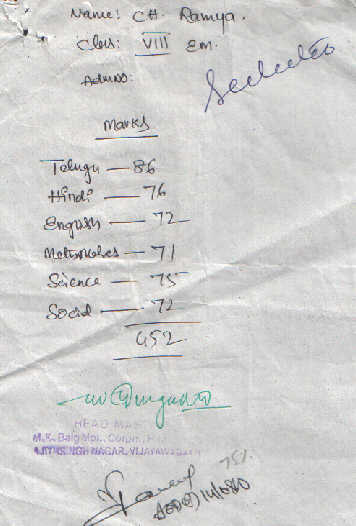 Name: CH. Ramya.
Class: VIII EM.
Selected
Address:
Marks
Telugu — 86
Hindi — 76
English — 72
Mathematics — 71
Science — 75
Social — 72
452
HEAD MAS
M.K. Baig Mpl. Corpn.
AJITHSINGH NAGAR, VIJAYAWADA
75%